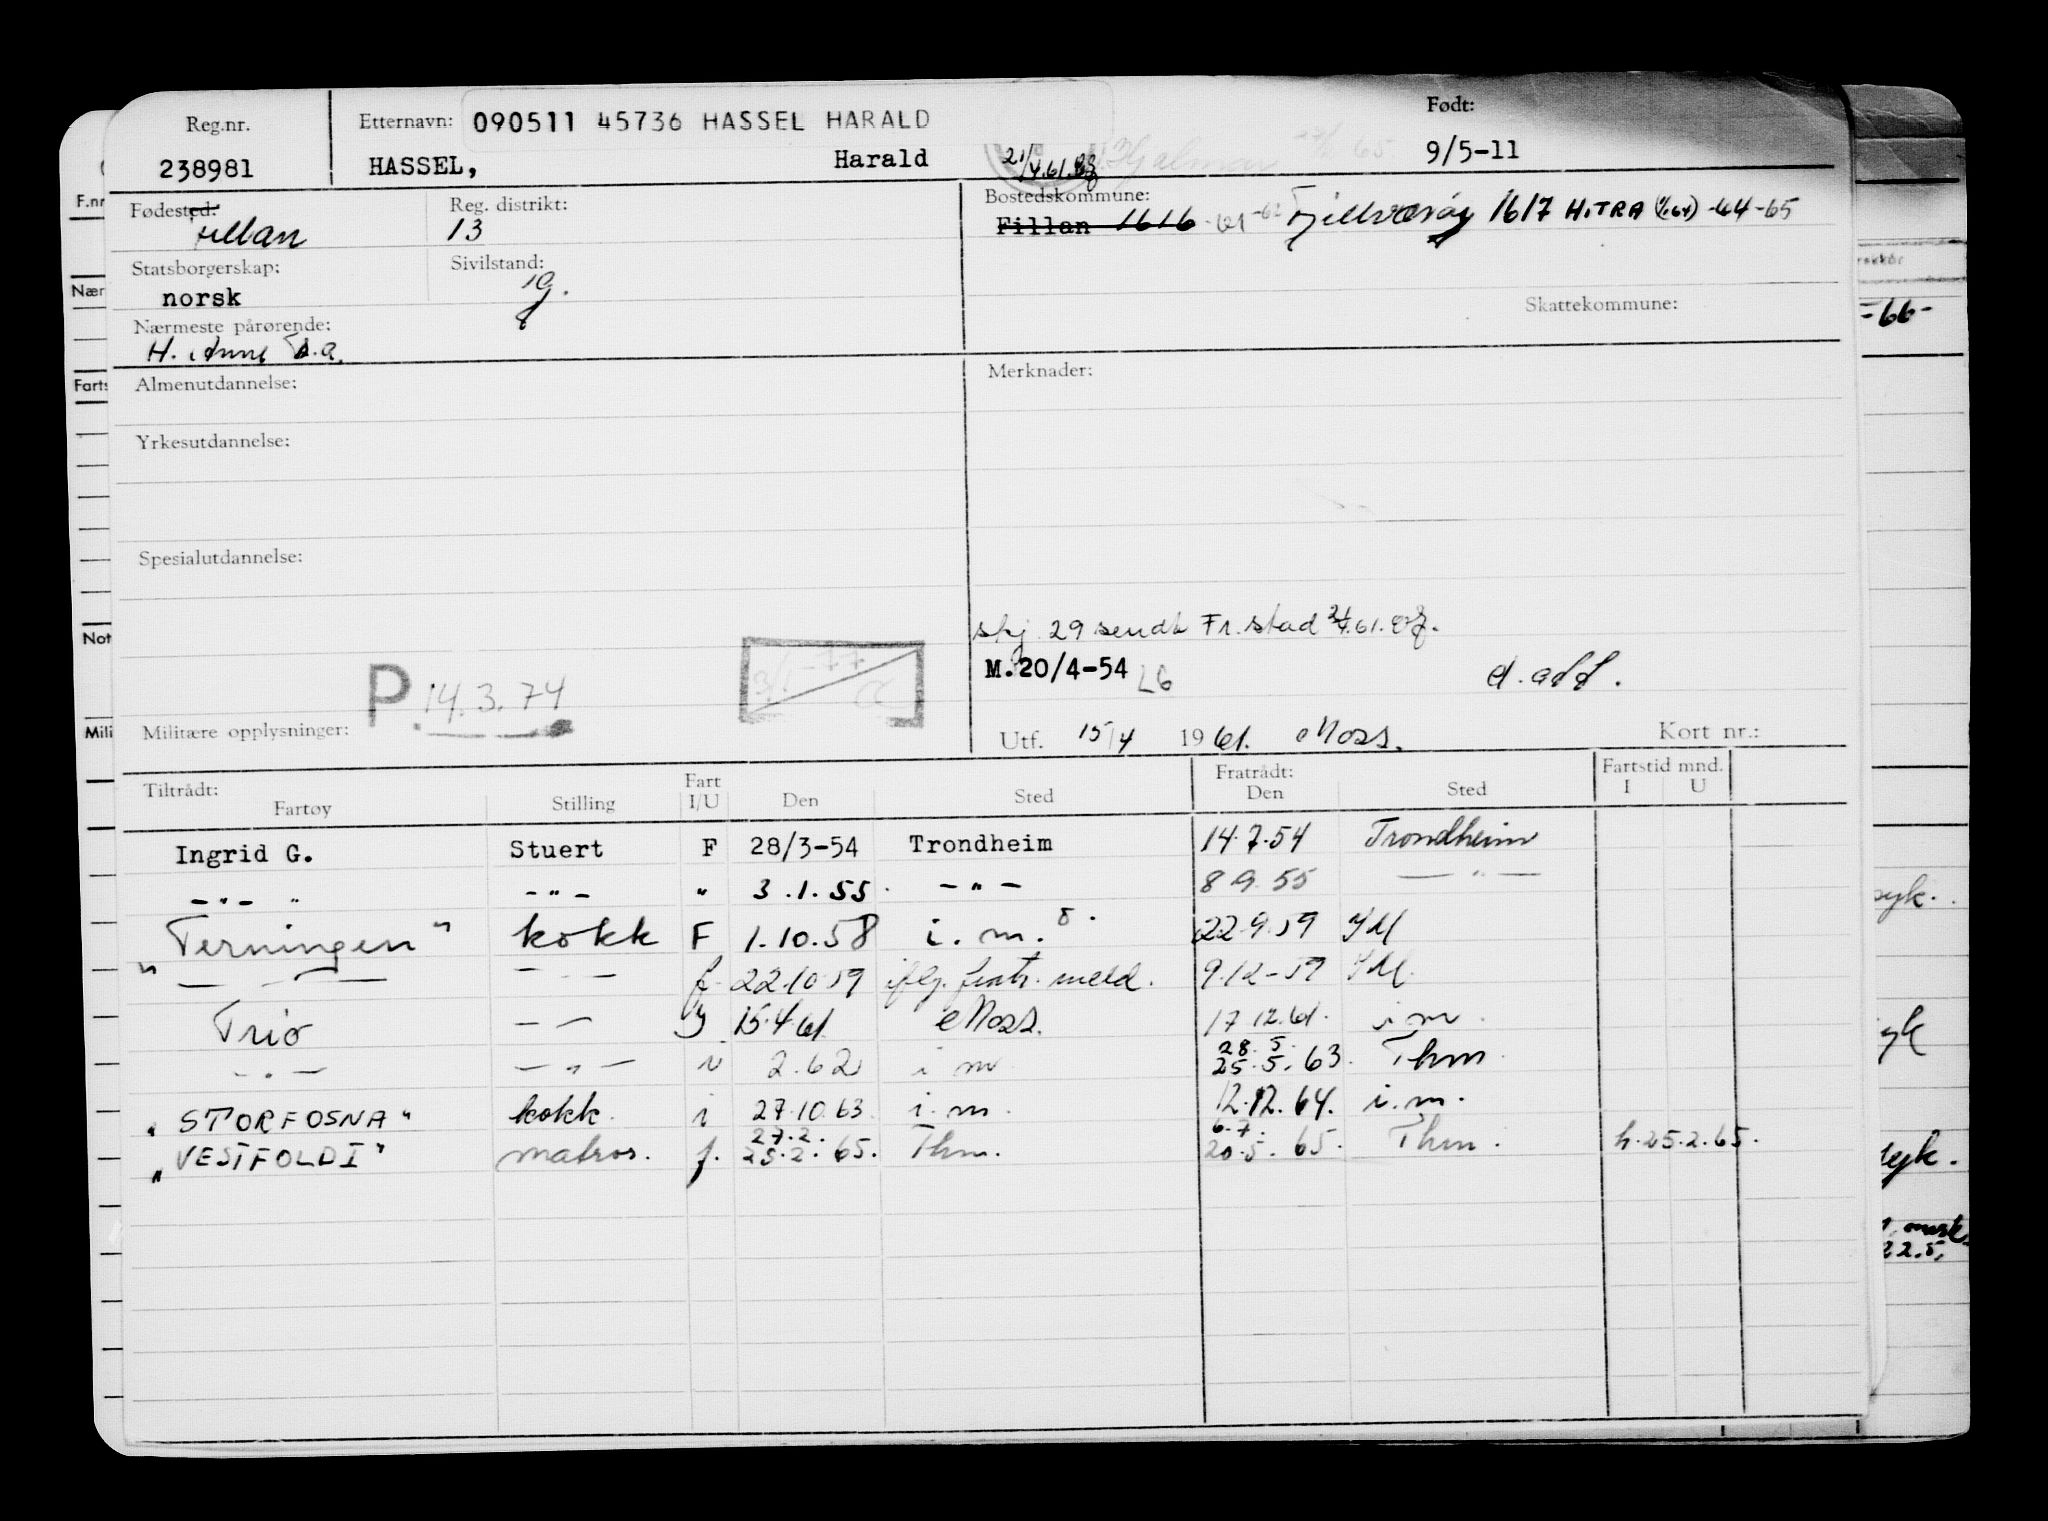 Reg.nr. Etternavn: 090511 45736 HASSEL HARALD Født:
238981 HASSEL, Harald 21/4.61. Hjalmar 9/5-11
Fødested: Reg. distrikt: Bostedskommune:
Fillan 13 Fillan 1616 -61 -62 Fjellværøy 1617 HITRA (1/1.64) -64-65
Statsborgerskap: Sivilstand:
norsk g. Skattekommune:
Nærmeste pårørende:
H. Anne s.a.
Almenutdannelse: Merknader:
Yrkesutdannelse:
Spesialutdannelse:
skj 29 sendt Fr.stad 21/4.61.
M.20/4-54 LG
P. 14.3.74 3/1-77
Militære opplysninger: Utf. 15/4 1961. Moss. Kort nr.:
Tiltrådt: Fart Fratrådt: Fartstid mnd.
Fartøy Stilling I/U Den Sted Den Sted I U
Ingrid G. Stuert F 28/3-54 Trondheim 14.7.54 Trondheim
-"- " -"- " 3.1.55. -"- 8 9. 55 -"-
"Terningen" kokk F 1.10.58 i.m. 22.9.59 YM
" - - - - f. 22.10.59 iflg. fratr. meld. 9.12-59 YM.
Trio - - 15.4 61. Moss. 17 12.61. i m.
- " - - " - i 2.62 i m 28. 5. 25.5. 63. Thm
"STORFOSNA" kokk. i 27.10.63. i.m. 12.12.64. i.m.
"VESTFOLD I" matros. f. 27.2. 25.2.65. Thm. 6.7. 20.5. 65. Thm. h.25.2.65.
F.nr
Nær
Farts
Not
Mili
-66-
22.5.